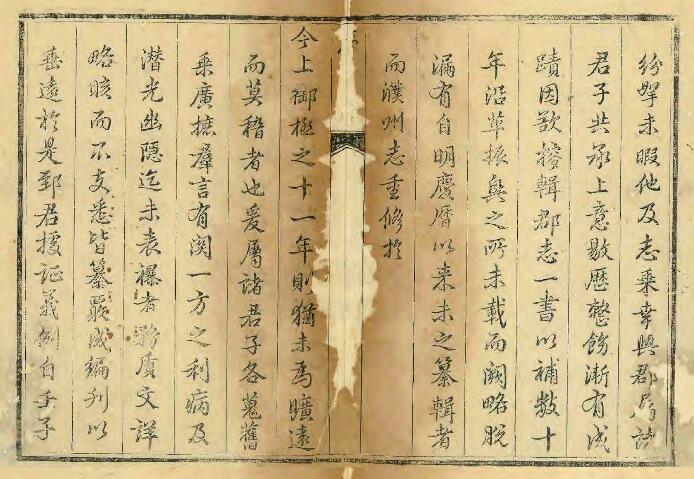 紛拏未暇他及志乘幸與郡局諸
君子共承上意敭歷整飭漸有成
蹟因欲搜輯郡志一書以補數十
年沿革振興之所未載而闕略脫
漏有自明慶曆以来未之纂輯者
而濮州志重修扵
今上御極之十一年則猶未為曠遠
而莫稽者也爰屬諸君子各蒐舊
乘廣摭羣言有関一方之利病及
潜光幽隱迄未表襮者務質文詳
略晐而不支悉皆纂斁成編刋以
垂遠扵是郅君援証義例自手子